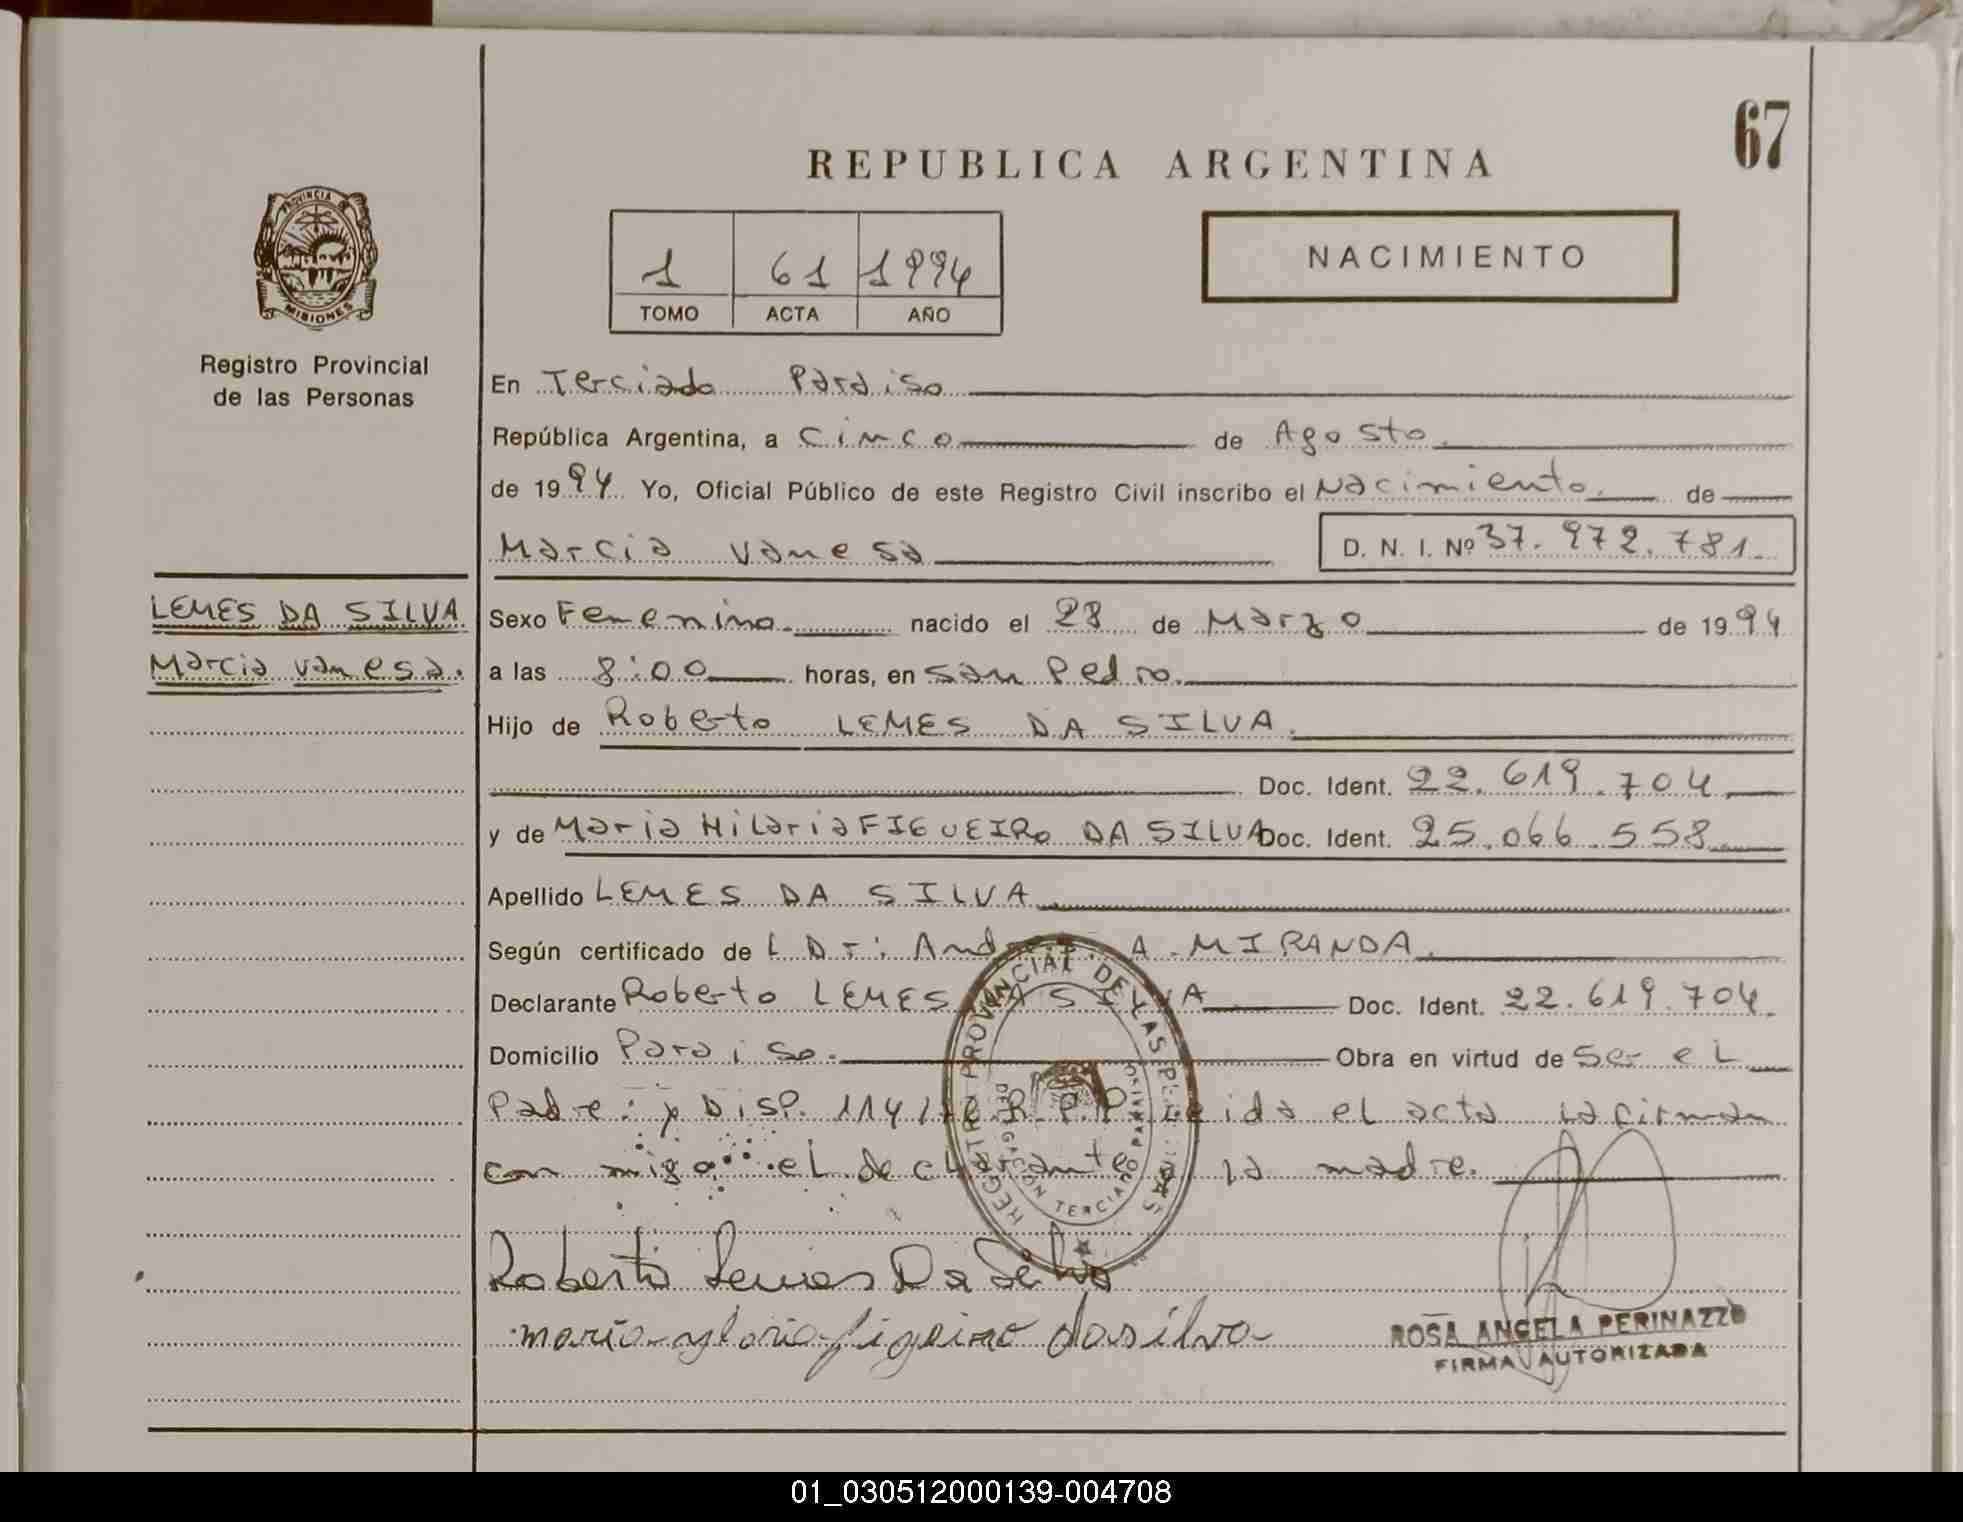 67
REPUBLICA ARGENTINA
PROVINCIA DE
MISIONES
Registro Provincial
de las Personas
1 61 1994
TOMO ACTA AÑO
NACIMIENTO
En Terciado Paraiso
República Argentina, a Cinco de Agosto.
de 1994 Yo, Oficial Público de este Registro Civil inscribo el Nacimiento. de
Marcia Vanesa D. N. I. Nº 37.972.781.
LEMES DA SILVA
Marcia Vanesa.
Sexo Femenino. nacido el 28 de Marzo de 1994
a las 8:00 horas, en San Pedro.
Hijo de Roberto LEMES DA SILVA.
Doc. Ident. 22.619.704
y de Maria Hilaria FIGUEIRO DA SILVA Doc. Ident. 25.066.558
Apellido LEMES DA SILVA
Según certificado de L Dr: A. MIRANDA.
Declarante Roberto LEMES DA SILVA Doc. Ident. 22.619.704.
Domicilio Paraiso. Obra en virtud de Ser el
Padre: y Disp. 114/ R.P.P. Leida el acta la firman
con migo el declarante y la madre.
REGISTRO PROVINCIAL DE LAS PERSONAS
DELEGACIÓN TERCIADO PARAISO
Roberto Lemes Da Silva
maria ylaria figeiro dasilva
ROSA ANGELA PERINAZZO
FIRMA AUTORIZADA
01_030512000139-004708